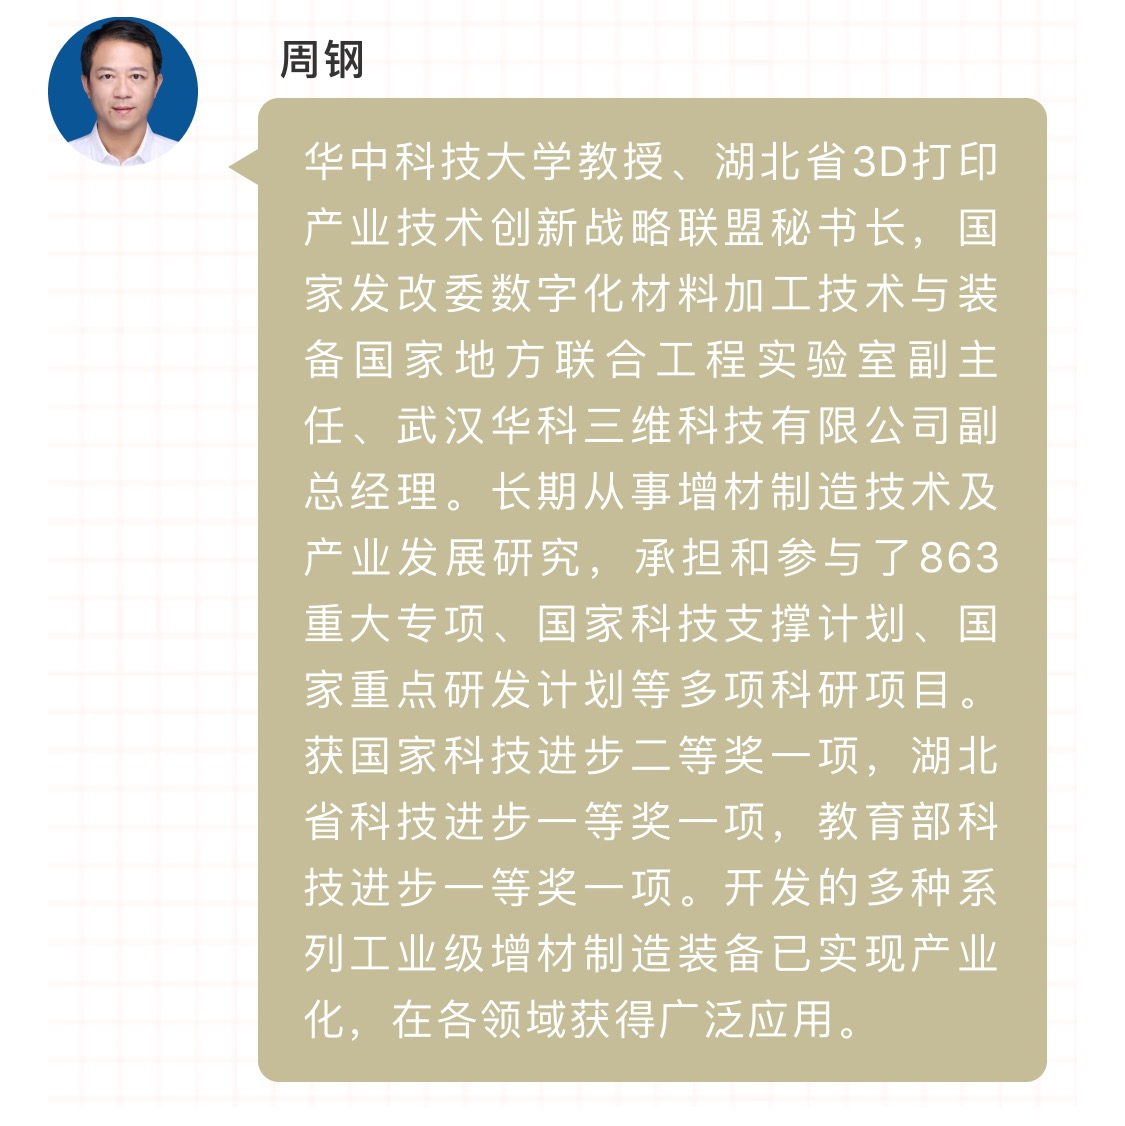 周钢
华中科技大学教授、湖北省3D打印
产业技术创新战略联盟秘书长，国
家发改委数字化材料加工技术与装
备国家地方联合工程实验室副主
任、武汉华科三维科技有限公司副
总经理。长期从事增材制造技术及
产业发展研究，承担和参与了863
重大专项、国家科技支撑计划、国
家重点研发计划等多项科研项目。
获国家科技进步二等奖一项，湖北
省科技进步一等奖一项，教育部科
技进步一等奖一项。开发的多种系
列工业级增材制造装备已实现产业
化，在各领域获得广泛应用。